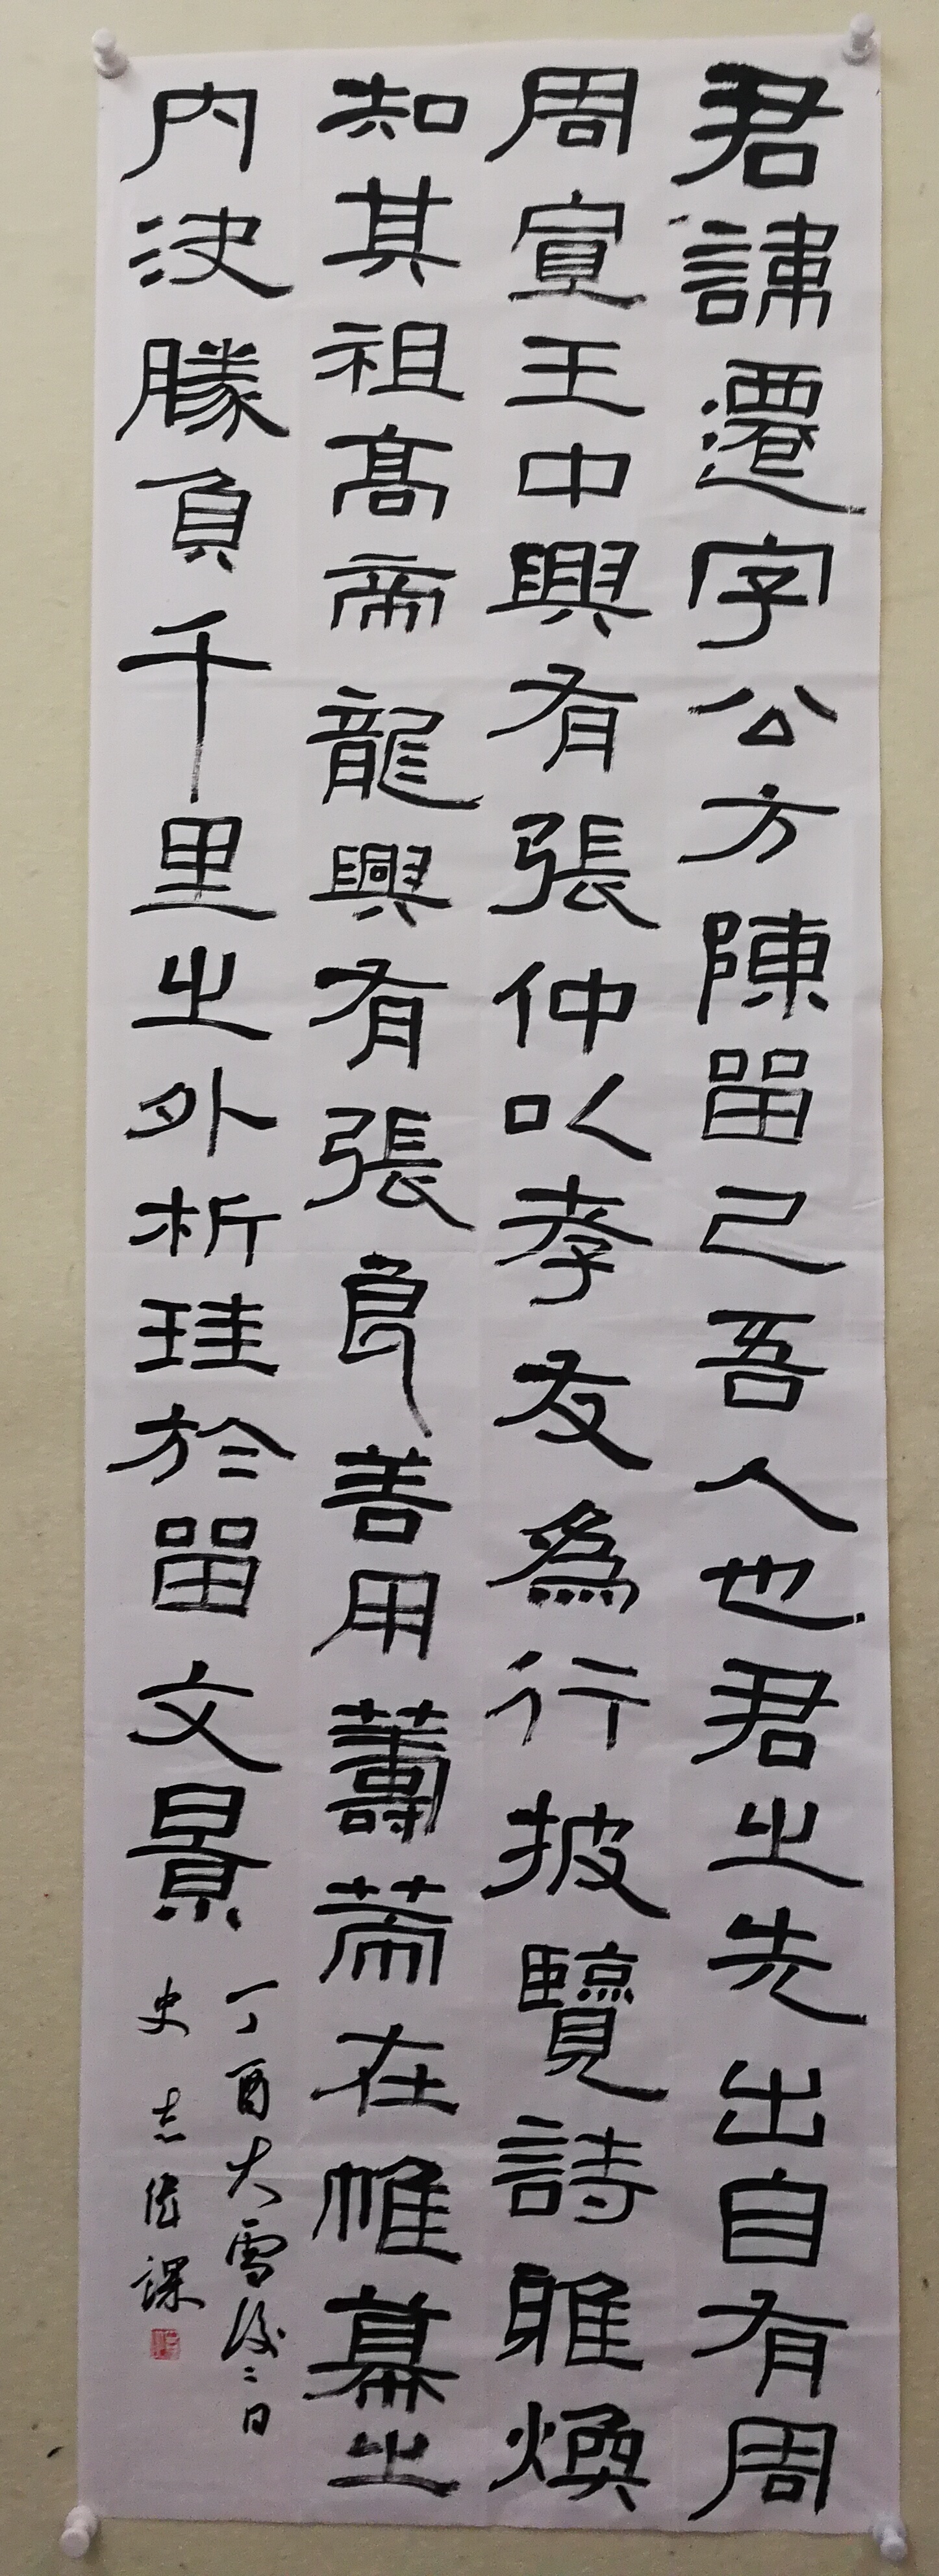 君諱遷字公方陳留己吾人也君之先出自有周
周宣王中興有張仲以孝友為行披覽詩雅煥
知其祖高帝龍興有張良善用籌策在帷幕之
内決勝負千里之外析珪於留文景
丁酉大雪後二日
史志 課